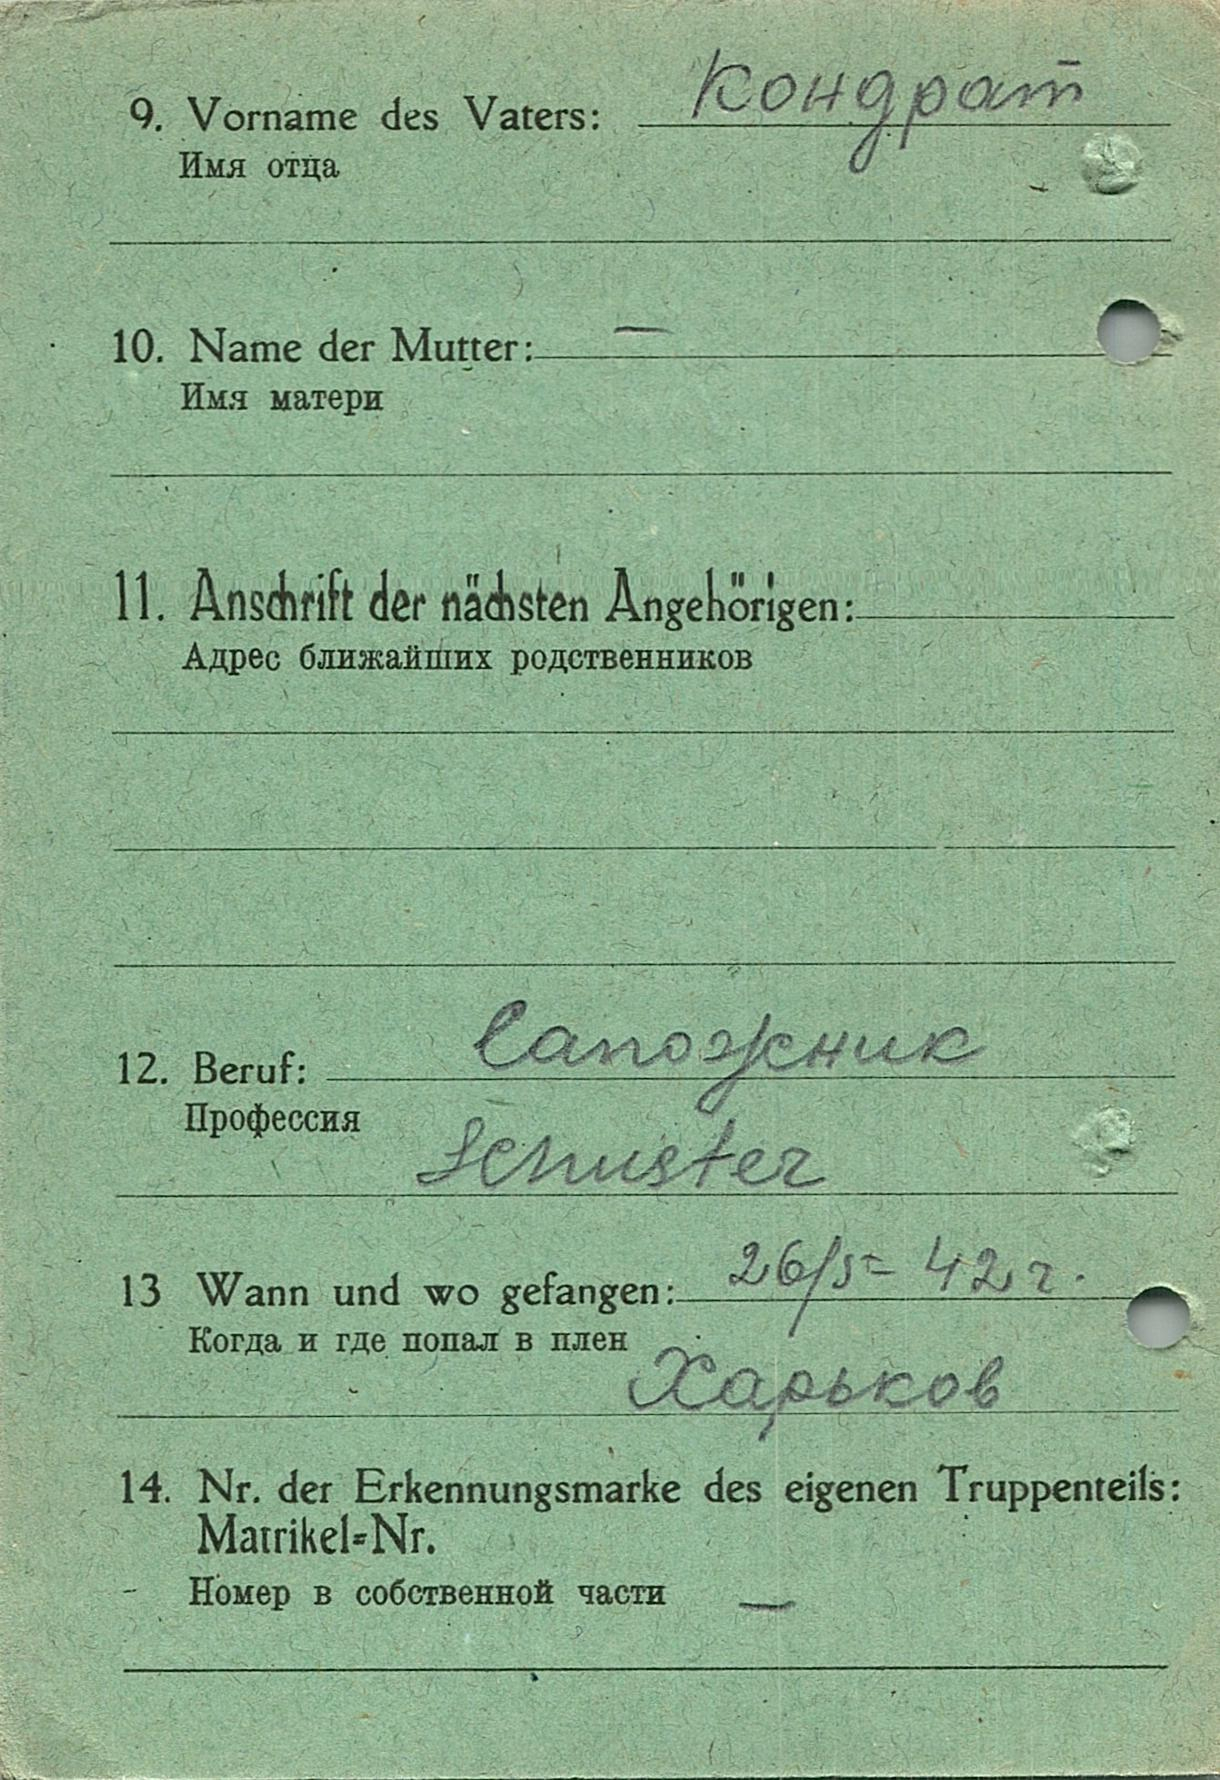 9. Vorname des Vaters: Кондрат
Имя отца
10. Name der Mutter: —
Имя матери
11. Anschrift der nächsten Angehörigen:
Адрес ближайших родственников
12. Beruf: Сапожник
Профессия
Schuster
13 Wann und wo gefangen: 26/5 = 42 г.
Когда и где попал в плен
Харьков
14. Nr. der Erkennungsmarke des eigenen Truppenteils:
Matrikel=Nr.
Номер в собственной части —